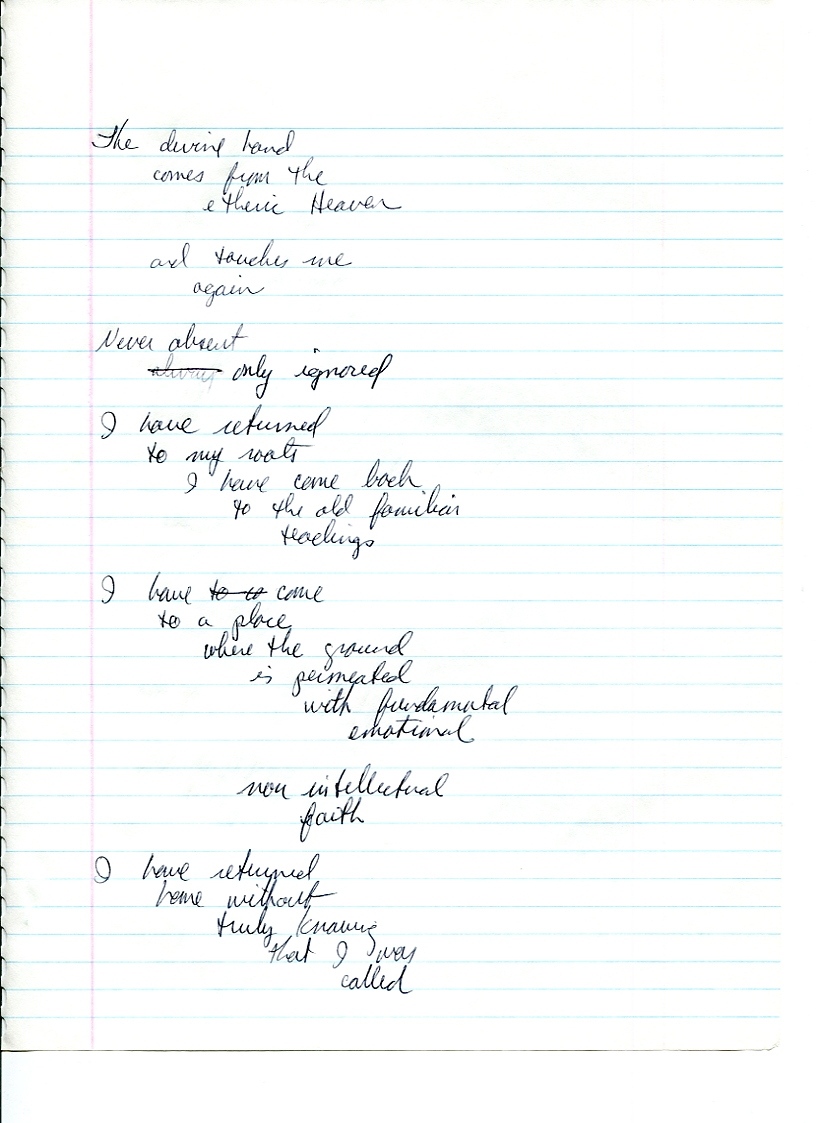 The divine hand
comes from the
etheric Heaven
and touches me
again
Never absent
always only ignored
I have returned
to my roots
I have come back
to the old familiar
teachings
I have to co come
to a place
where the ground
is permeated
with fundamental
emotional
non intellectual
faith
I have returned
home without
truly knowing
that I was
called